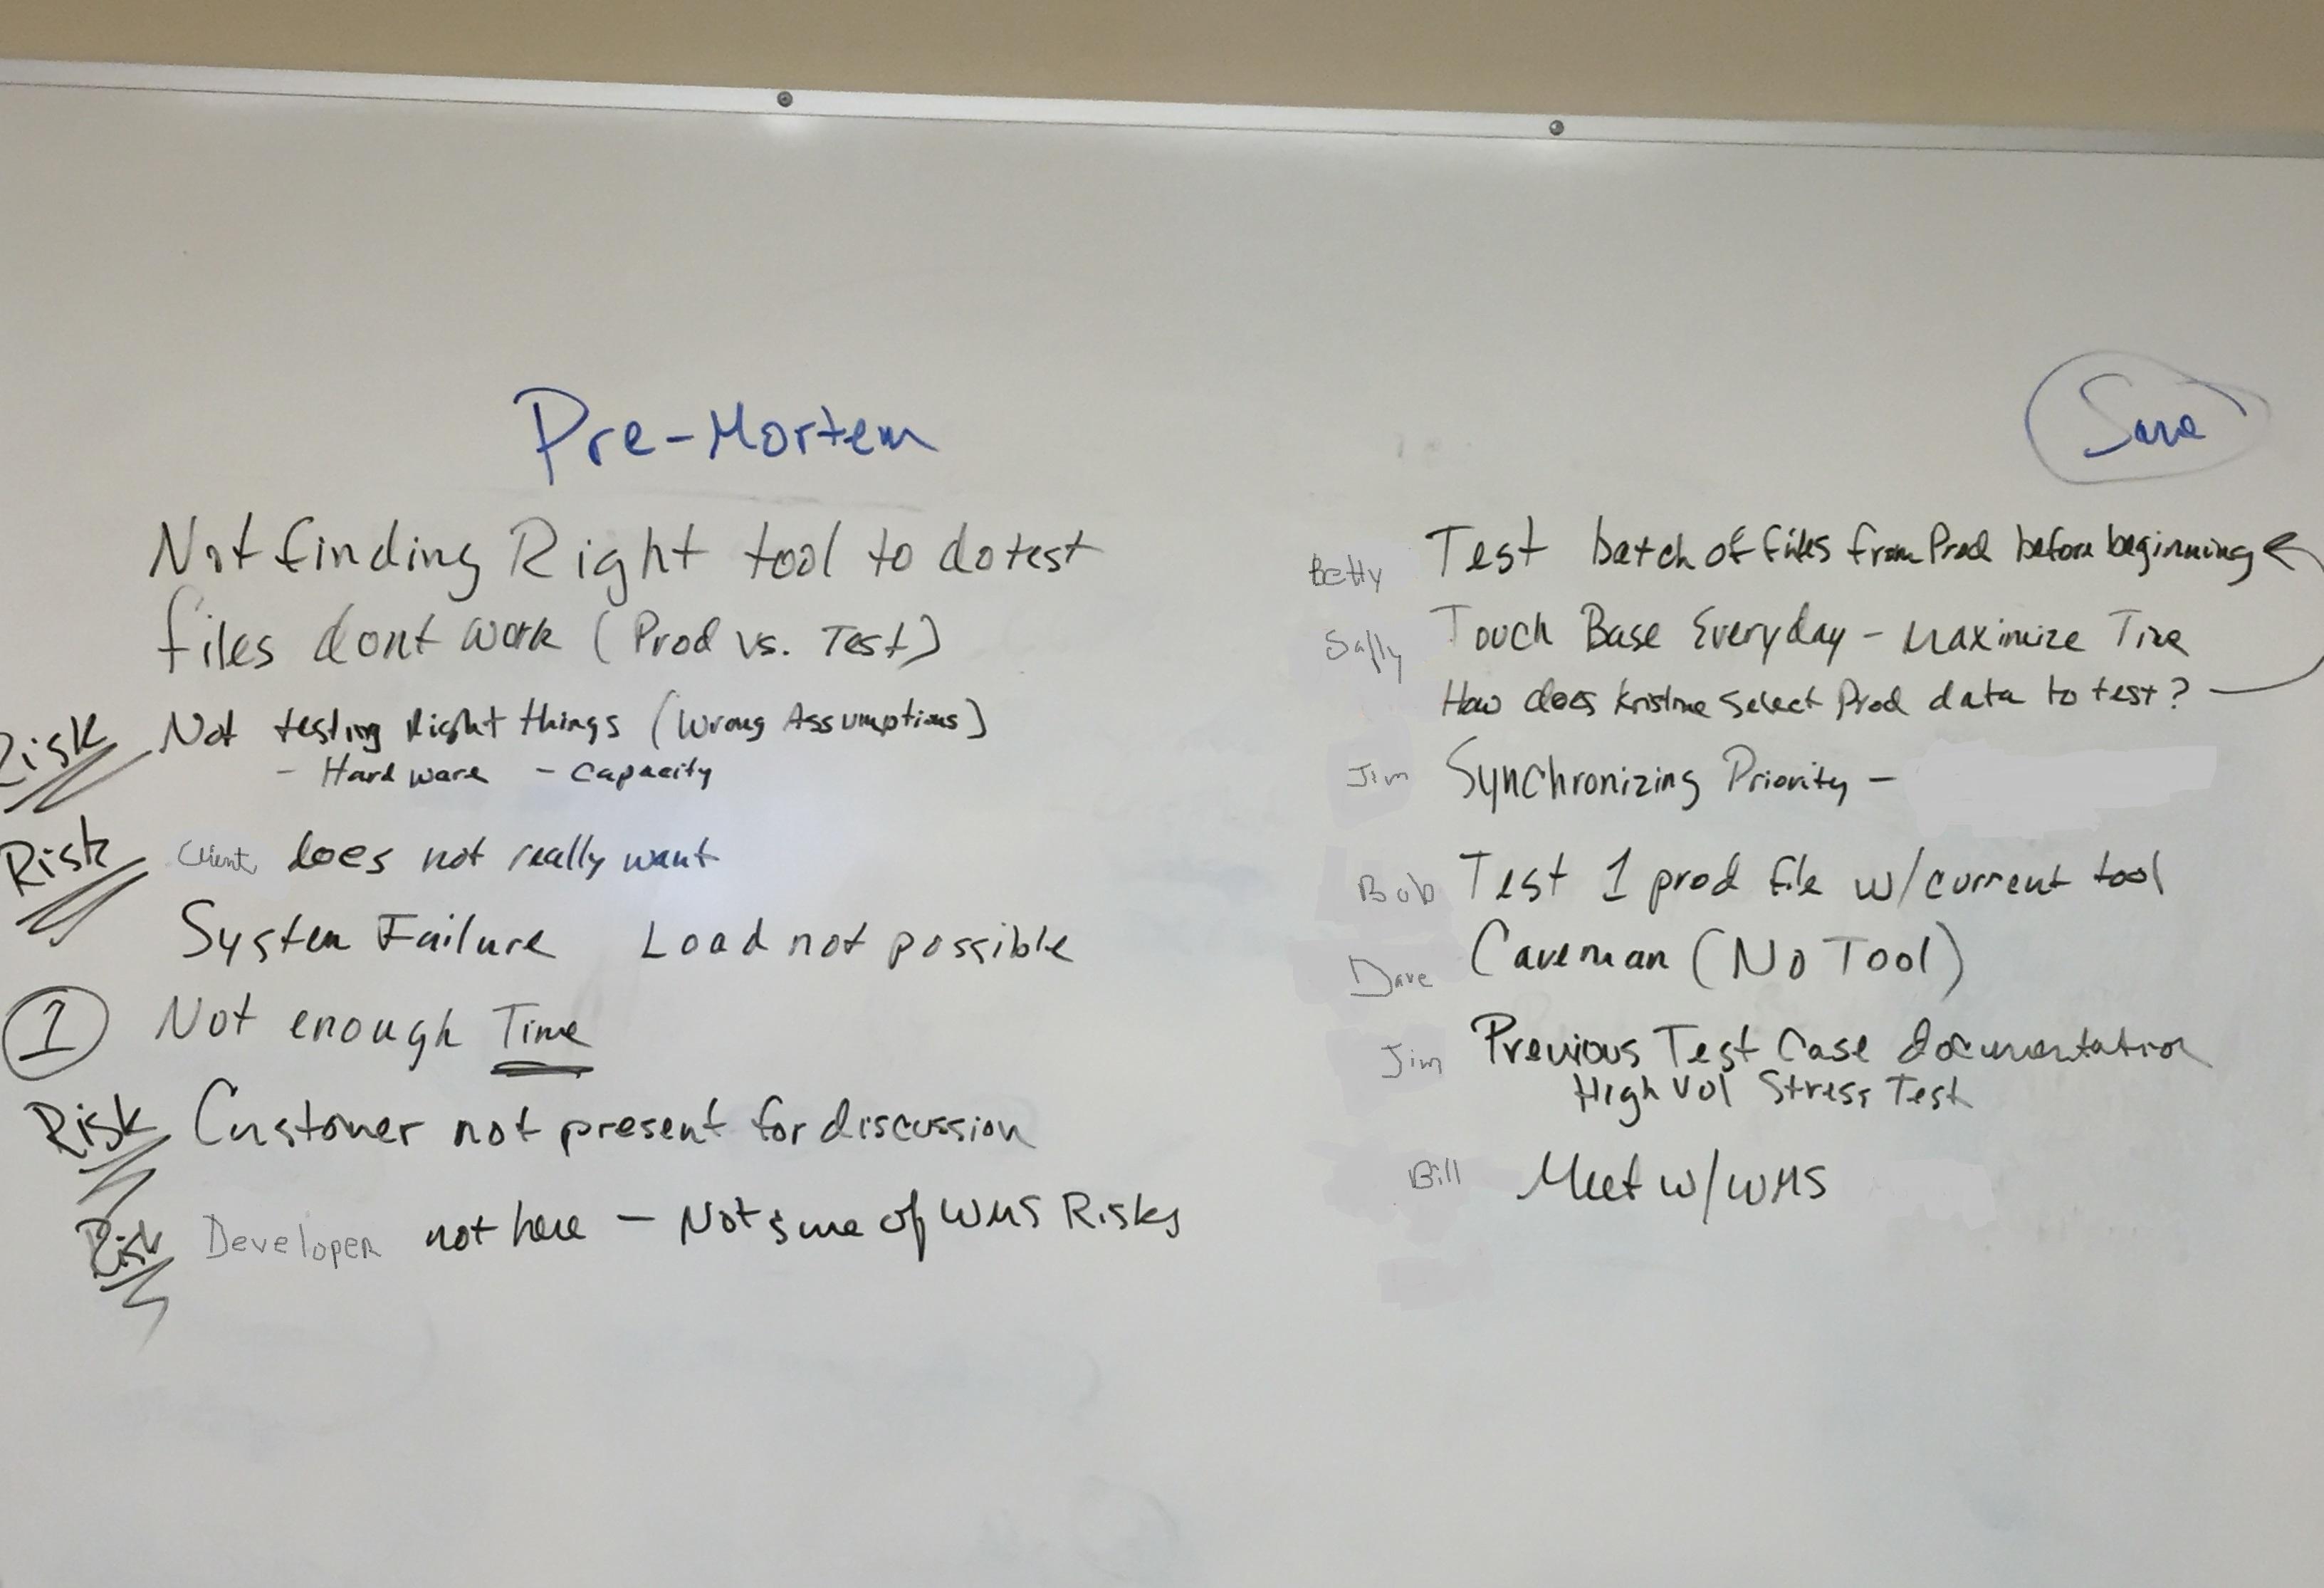 Pre-Mortem
Not finding Right tool to do test
files dont work (Prod vs. Test)
Risk Not testing Right things (Wrong Assumptions)
- Hardware - Capacity
Risk Client does not really want
System Failure Load not possible
1 Not enough Time
Risk Customer not present for discussion
Risk Developer not here - Not sure of WMS Risks
Save
Betty Test batch of files from Prod before beginning
Sally Touch Base Everyday - Maximize Time
How does Kristine Select Prod data to test?
Jim Synchronizing Priority -
Bob Test 1 prod file w/current tool
Dave Caveman (No Tool)
Jim Previous Test Case documentation
High Vol Stress Test
Bill Meet w/WMS